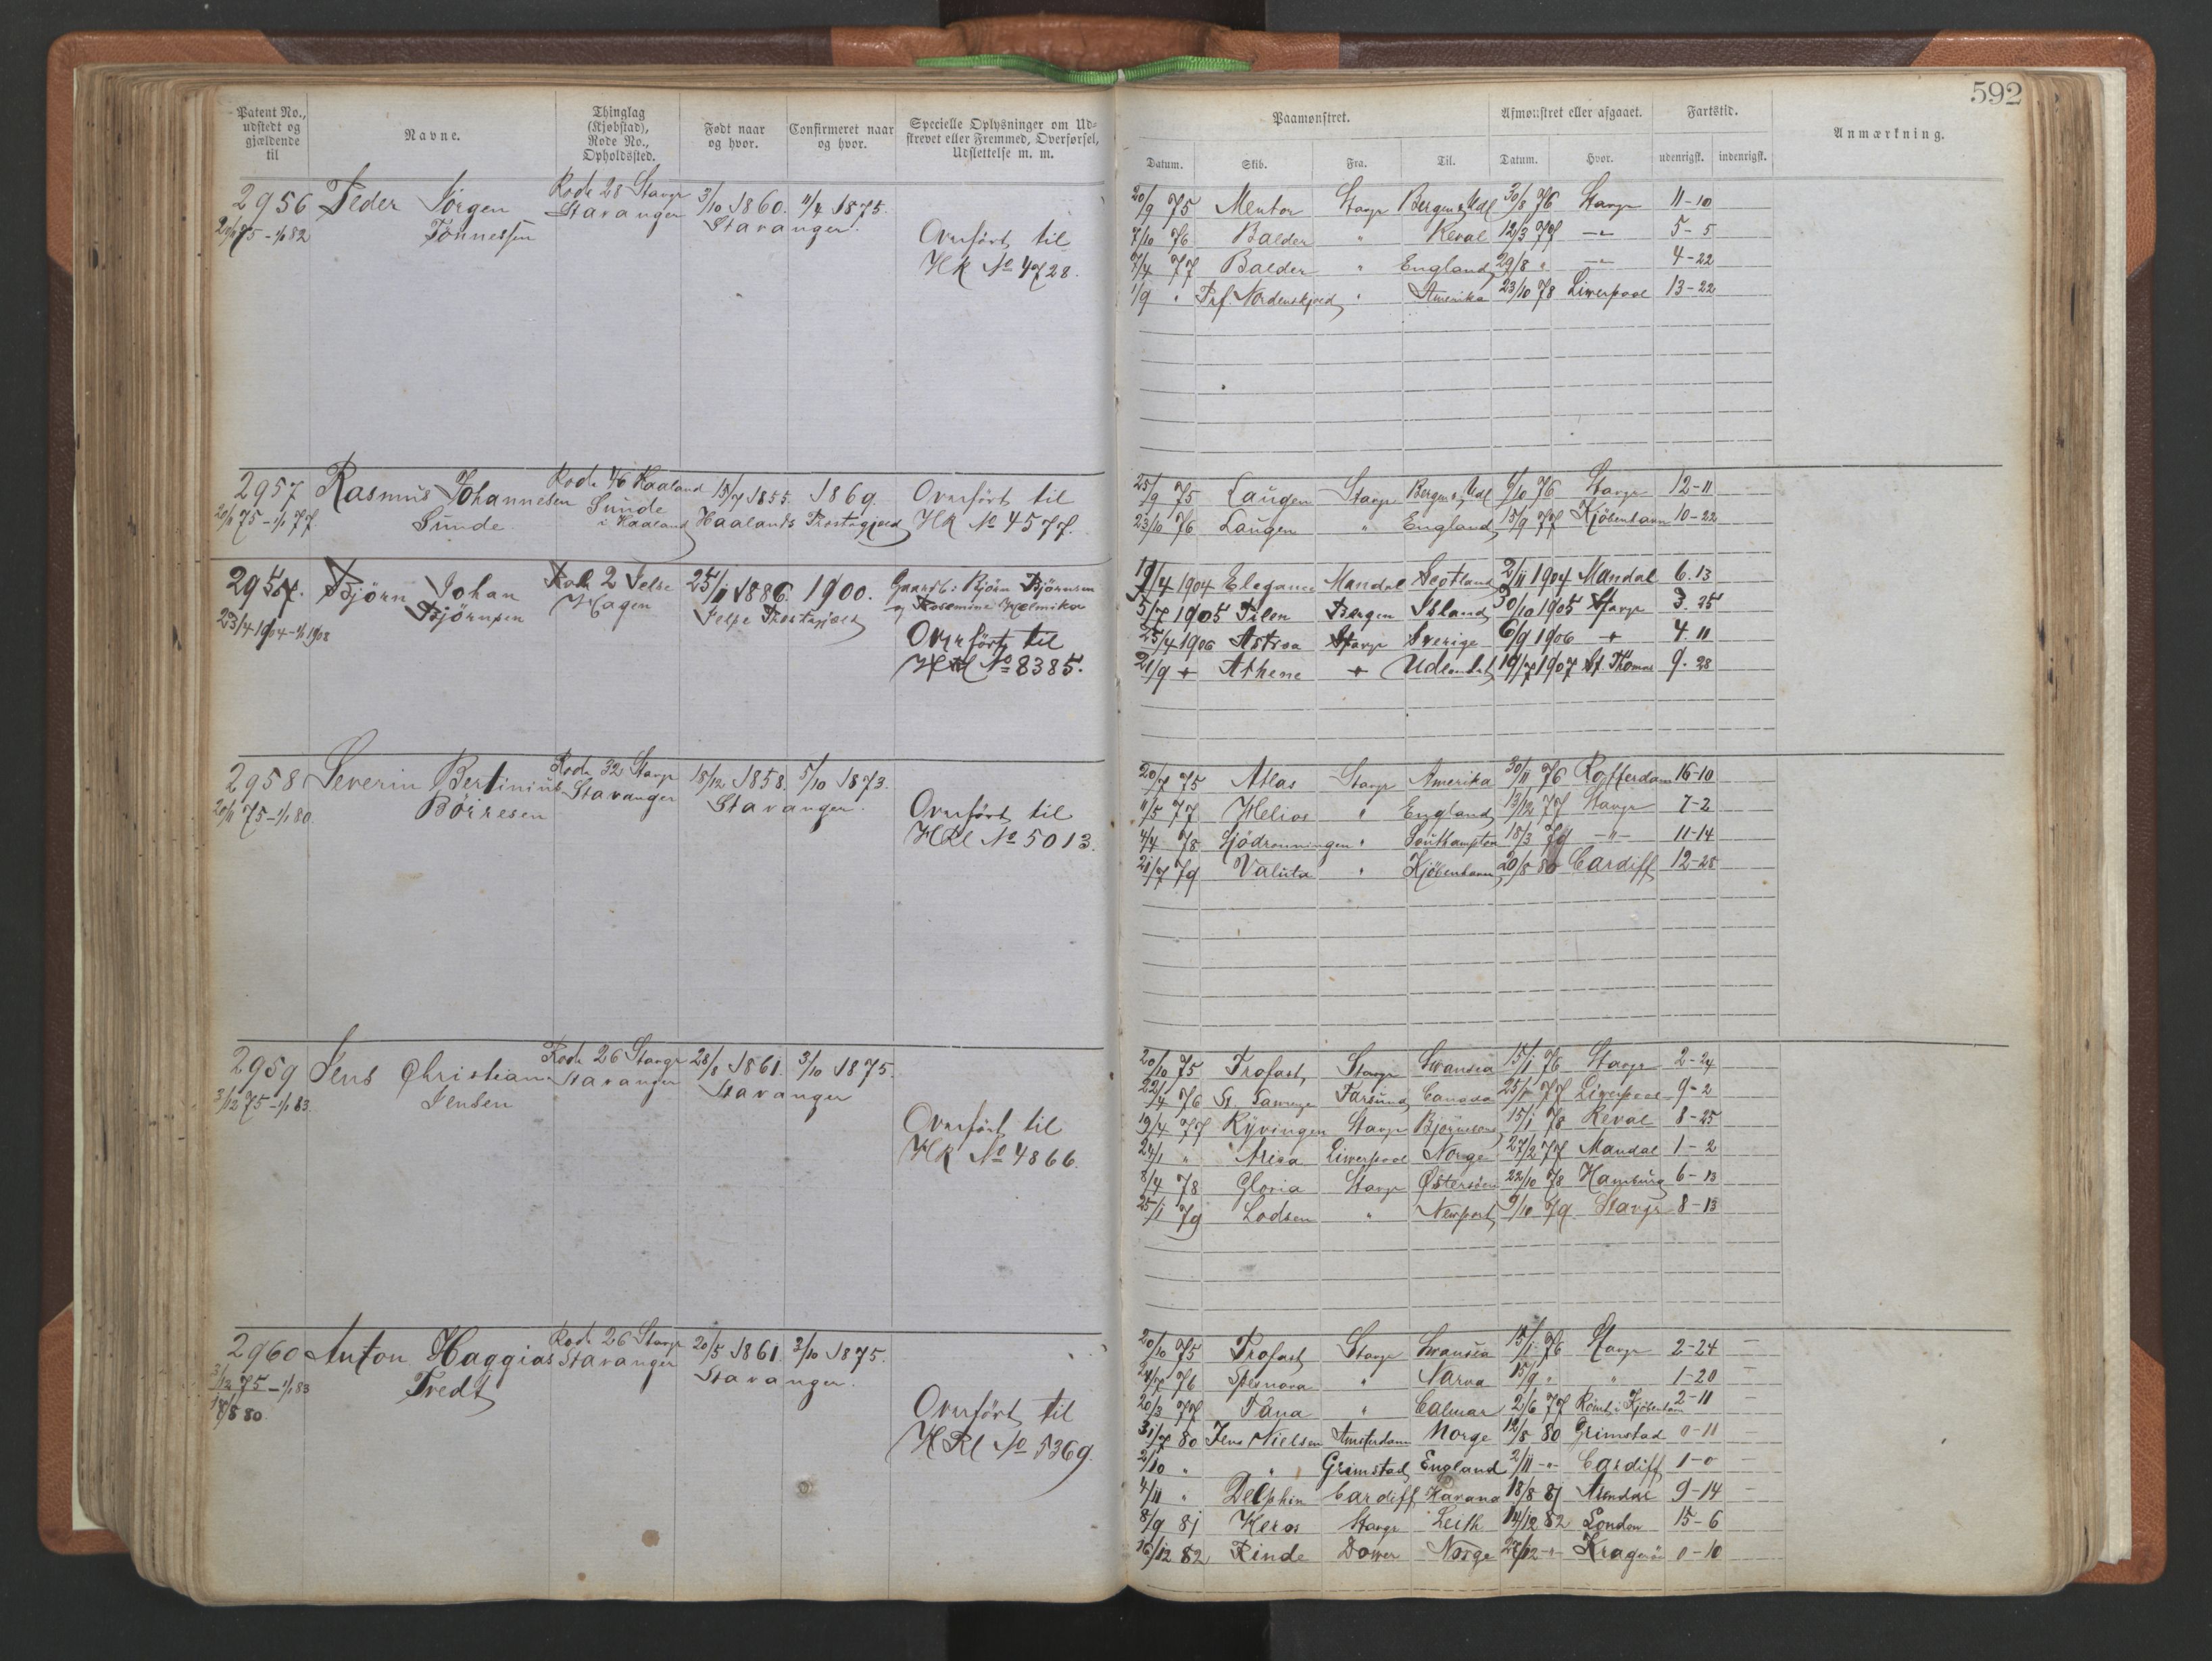 592
Patent No., udstedt og gjældende til
Navne.
Thinglag (Kjøbstad), Rode No., Opholdssted.
Født naar og hvor.
Confirmeret naar og hvor.
Specielle Oplysninger om Udskrevet eller Fremmed, Overførsel, Udslettelse m. m.
Paamønstret.
Afmønstret eller afgaaet.
Fartstid.
Anmærkning.
Datum. Skib. Fra. Til. Datum. Hvor. udenrigsk. indenrigsk.
2956 Peder Jörgen Rode 28 Stavgr 3/10 1860. 11/4 1875.
75 - 1/1 82 Tönnessen Stavanger Stavanger.
Overfört til
HR No 4728.
20/9 75 Mentor Stavgr Bergen & Udl 30/8 76 Stavgr 11-10
7/10 76 Balder " Reval 12/3 77 -"- 5-5
7/4 77 Balder " England 29/8 " -"- 4-22
1/9 " Prf Nordenskjold " Amerika 23/10 78 Liverpool 13-22
2957 Rasmus Johannesen Rode 46 Haaland 15/7 1855. 1869. Overfört til
75 - 1/1 77. Sunde Sunde i Haaland Haalands Præstegjeld HR No 4577.
25/9 75 Laugen Stavgr Bergen & Udl 6/10 76 Stavgr 12-11
23/10 76 Laugen " England 15/9 77 Kjöbenhavn 10-22
2957. Björn Johan Rode 2 Jelse 25/11 1886. 1900. Gaardb: Björn Björnsen
23/4 1904 - 1/1 1908 Björnsen Hagen Jelse Præstegjeld
Overfört til
HRl No 8385.
19/4 1904 Elegance Mandal Scotland 2/11 1904 Mandal 6.13
5/7 1905 Pilen Bergen Island 30/10 1905 Stavgr 3.25
25/4 1906 Astrea Stavgr Sverige 6/9 1906 + 4.11
21/9 + Athene + Udlandet 19/7 1907 St. Thomas 9.28
2958 Severin Bertinius Rode 32 Stavgr 18/12 1858. 5/10 1873.
75 - 1/1 80. Börresen Stavanger Stavanger.
Overfört til
HRl No 5013.
20/7 75 Atlas Stavgr Amerika 30/11 76 Rotterdam 16-10
11/5 77 Helios " England 13/12 77 Stavgr 7-2
4/4 78 Sjödronningen " Southampton 18/3 79 -"- 11-14
21/7 79 Valuta " Kjöbenhavn 20/8 80 Cardiff 12-28
2959 Jens Christian Rode 26 Stavgr 28/8 1861. 3/10 1875.
3/12 75 - 1/1 83. Jensen Stavanger Stavanger
Overfört til
HR No 4866.
20/10 75 Trofast Stavgr Swansea 15/1 76 Stavgr 2-24
22/4 76 St. Farsund Canada 25/1 77 Liverpool 9-2
19/4 77 Ryvingen Stavgr 15/1 78 Reval 8-25
24/1 " Liverpool Norge 27/2 77 Mandal 1-2
8/4 78 Gloria Stavgr Östersöen 22/10 78 Hamburg 6-13
25/1 79 Lodsen " Newport 9/10 79. Stavgr 8-13
2960 Anton Haggias Rode 26 Stavgr 20/5 1861. 3/10 1875.
3/12 75 - 1/1 83 Tredt Stavanger Stavanger.
18/8 80.
Overfört til
HRl No 5369.
20/10 75 Trofast Stavgr Swansea 15/1 76 Stavgr 2-24 -
24/7 76 Spesnova " Narva 15/9 " " 1-20 -
20/3 77 Tana " Calmar 2/6 77 Römt i Kjöbenhavn 2-11 -
31/7 80 Jens Nielsen Amsterdam Norge 12/8 80 Grimstad 0-11 -
2/10 " " Grimstad England 2/11 -"- Cardiff 1-0 -
4/11 " Delphin Cardiff Havana 18/8 81 Arendal 9-14 -
8/9 81 Heros Stavgr Leith 14/12 82 London 15-6
16/12 82 Rinde Dower Norge 27/12 -"- Kragerö 0-10